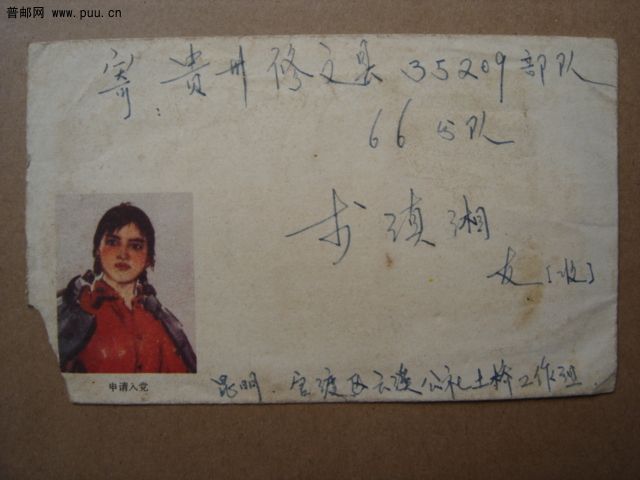 普邮网 www.puu.cn
寄：贵州修文县35209部队
66分队
滇湘
友[收]
申请入党
昆明.官渡区云溪公社土桥工作组